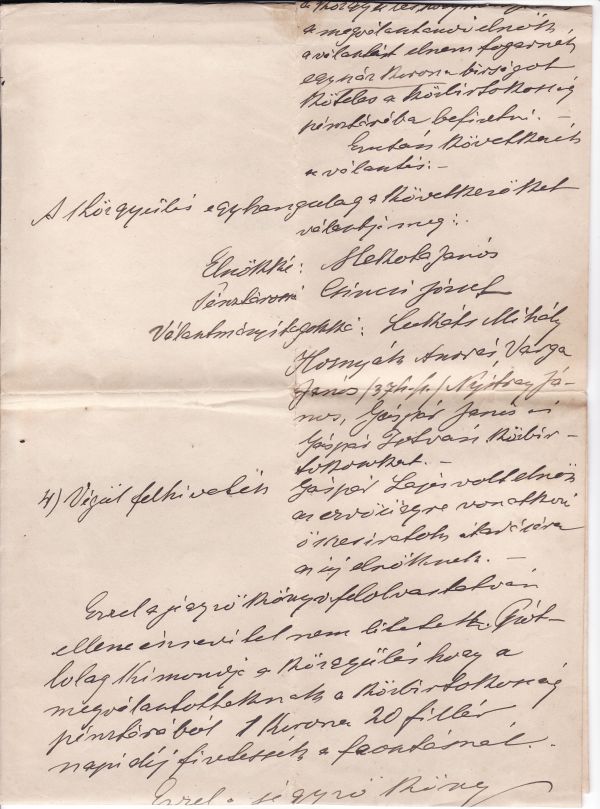 a megválasztandó elnök
a választást el nem fogadnák
egy száz korona birságot
köteles a közbirtokosság
pénztárába befizetni. –
Ezután következik
a választás: –
A közgyülés egyhangulag a következőket
választja meg:
Elnökké: Mekota János
Pénztárossá Csincsi József
Választmányi tagokká: Lukáts Mihály
Hornyák András, Varga
János /37 h.sz./ Nyitray Já-
nos, Gáspár János és
Gáspár István közbir-
tokosokat. –
4) Végül felhivatik Gáspár Lajos volt elnök
az erdőügyre vonatkozó
össze iratok átadására
az új elnöknek. –
Ezzel a jegyző könyv felolvastatván
ellene észrevétel nem tétetett. Pót-
lolag kimondja a közgyülés hogy a
megválasztottaknak a közbirtokosság
pénztárából 1 korona 20 fillér
napi díj fizetessék a
Ezzel a jegyző köny